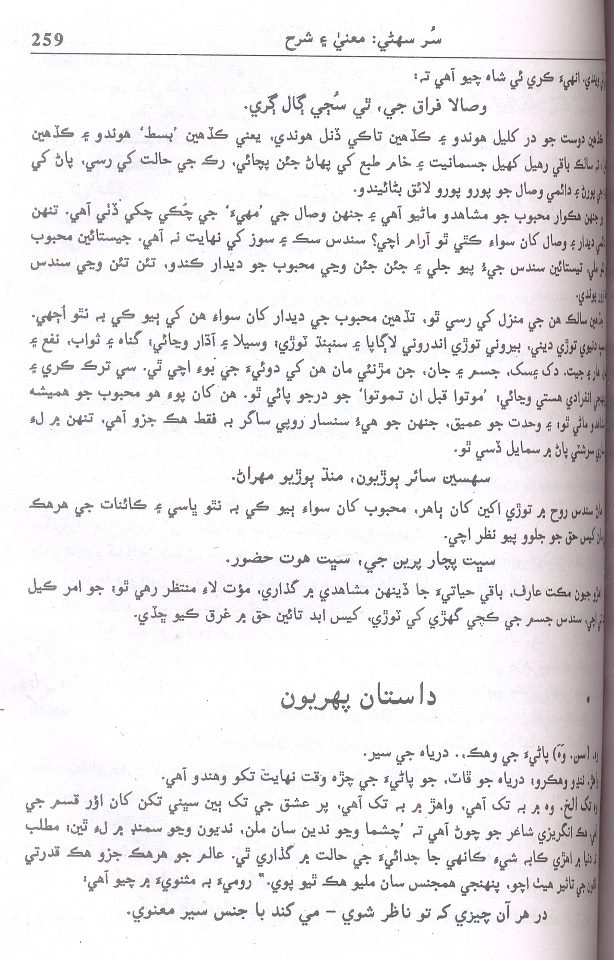 سُر سھڻي: معنيٰ ۽ شرح 259
ويندي. انھيءَ ڪري ئي شاھ چيو آهي تہ:
وصالا فراق جي، ٿي سُڃي ڳال ڳري.
دوست جو در کليل هوندو ۽ ڪڏهين تاڪي ڏنل هوندي، يعني ڪڏهين ’بسط‘ هوندو ۽ ڪڏهين
تہ سالڪ باقي رهيل کهيل جسمانيت ۽ خام طبع کي پھاڻ جئن پچائي، رڪ جي حالت کي رسي، پاڻ کي
۽ دائمي وصال جو پورو پورو لائق بڻائيندو.
جنھن هڪوار محبوب جو مشاهدو ماڻيو آهي ۽ جنھن وصال جي ’مھيءَ‘ جي چَڪي چکي ڏٺي آهي. تنھن
ديدار ۽ وصال کان سواءِ ڪٿي ٿو آرام اچي؟ سندس سڪ ۽ سوز کي نھايت نہ آهي. جيستائين محبوب
ملي، تيستائين سندس جيءُ پيو جلي ۽ جئن جئن وڃي محبوب جو ديدار ڪندو، تئن تئن وڃي سندس
پوندي.
سالڪ هن جي منزل کي رسي ٿو، تڏهين محبوب جي ديدار کان سواءِ هن کي ٻيو ڪي بہ نٿو اُجهي.
دنيوي توڙي ديني، بيروني توڙي اندروني لاڳاپا ۽ سنٻنڌ ٽوڙي؛ وسيلا ۽ آڌار وڃائي؛ گناھ ۽ ثواب، نفع ۽
۽ جيت، دک ۽ سک، جسم ۽ جان، جن مڙني مان هن کي دوئيءَ جي بوءِ اچي ٿي. سي ترڪ ڪري ۽
انفرادي هستي وڃائي؛ ’موتوا قبل ان تموتوا‘ جو درجو پائي ٿو. هن کان پوءِ هو محبوب جو هميشه
ماڻي ٿو؛ ۽ وحدت جو عميق، جنھن جو هيءُ سنسار روپي ساگر بہ فقط هڪ جزو آهي، تنھن ۾ لءِ
سرشٽي پاڻ ۾ سمايل ڏسي ٿو.
سھسين سائر ٻوڙيون، منڌ ٻوڙيو مھراڻ.
سندس روح ۾ توڙي اکين کان ٻاهر، محبوب کان سواءِ ٻيو ڪي بہ نٿو ڀاسي ۽ ڪائنات جي هرهڪ
کيس حق جو جلوو پيو نظر اچي.
سڀت پچار پرين جي، سڀت هوت حضور.
جيون مڪت عارف، باقي حياتيءَ جا ڏينھن مشاهدي ۾ گذاري، مؤت لاءِ منتظر رهي ٿو؛ جو امر کيل
اچي، سندس جسم جي ڪچي گهڙي کي ٽوڙي، کيس ابد تائين حق ۾ غرق ڪيو ڇڏي.
داستان پھريون
(سن. وَھَ) پاڻيءَ جي وهڪ، . درياه جي سير.
ننڍو وهڪرو؛ درياه جو ڦاٽ، جو پاڻيءَ جي چڙه وقت نھايت تکو وهندو آهي.
تک الخ. وه ۾ بہ تک آهي، واهڙ ۾ بہ تک آهي، پر عشق جي تک ٻين سڀني تکن کان اؤر قسم جي
هڪ انگريزي شاعر جو چوڻ آهي تہ ’چشما وڃو ندين سان ملن، نديون وڃو سمنڊ ۾ لءِ ٿين؛ مطلب
دنيا ۾ اهڙي ڪابہ شيءِ ڪانهي جا جدائيءَ جي حالت ۾ گذاري ٿي. عالم جو هرهڪ جزو هڪ قدرتي
جي تاثير هيٺ اچو، پنھنجي همجنس سان مليو هڪ ٿيو پوي." روميءَ بہ مثنويءَ ۾ چيو آهي:
در هر آن چيزي کہ تو ناظر شوي – مي کند با جنس سير معنوي.